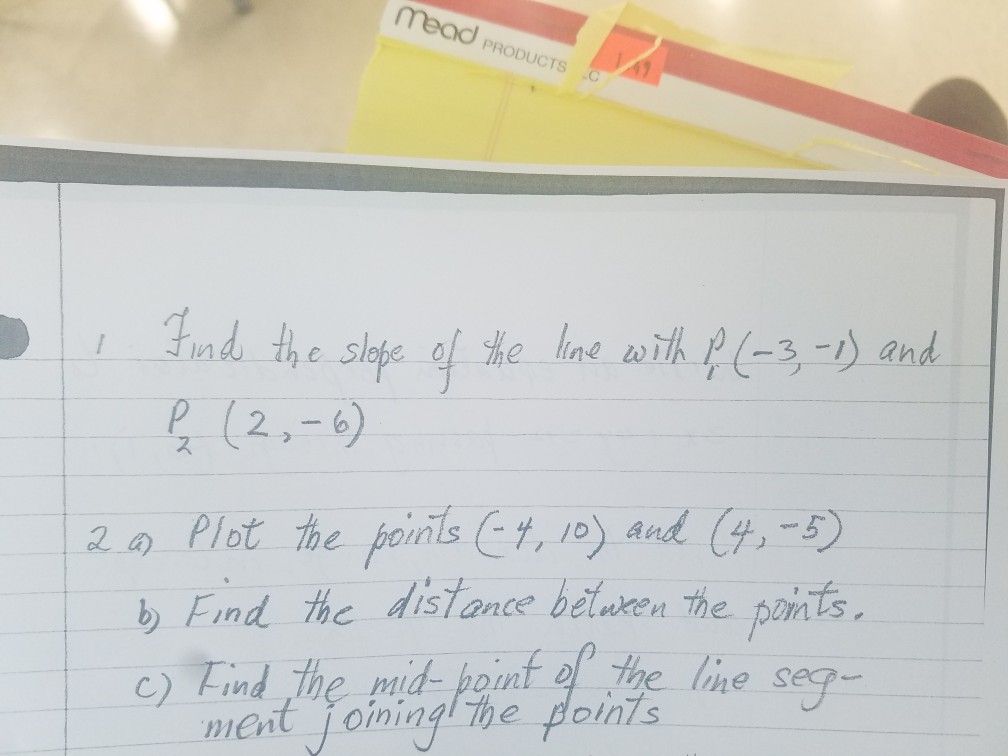 mead PRODUCTS LLC
1 99
1 Find the slope of the line with P1 (-3, -1) and
P2 (2, -6)
2 a) Plot the points (-4, 10) and (4, -5)
b) Find the distance between the points.
c) Find the mid-point of the line seg-
ment joining the points